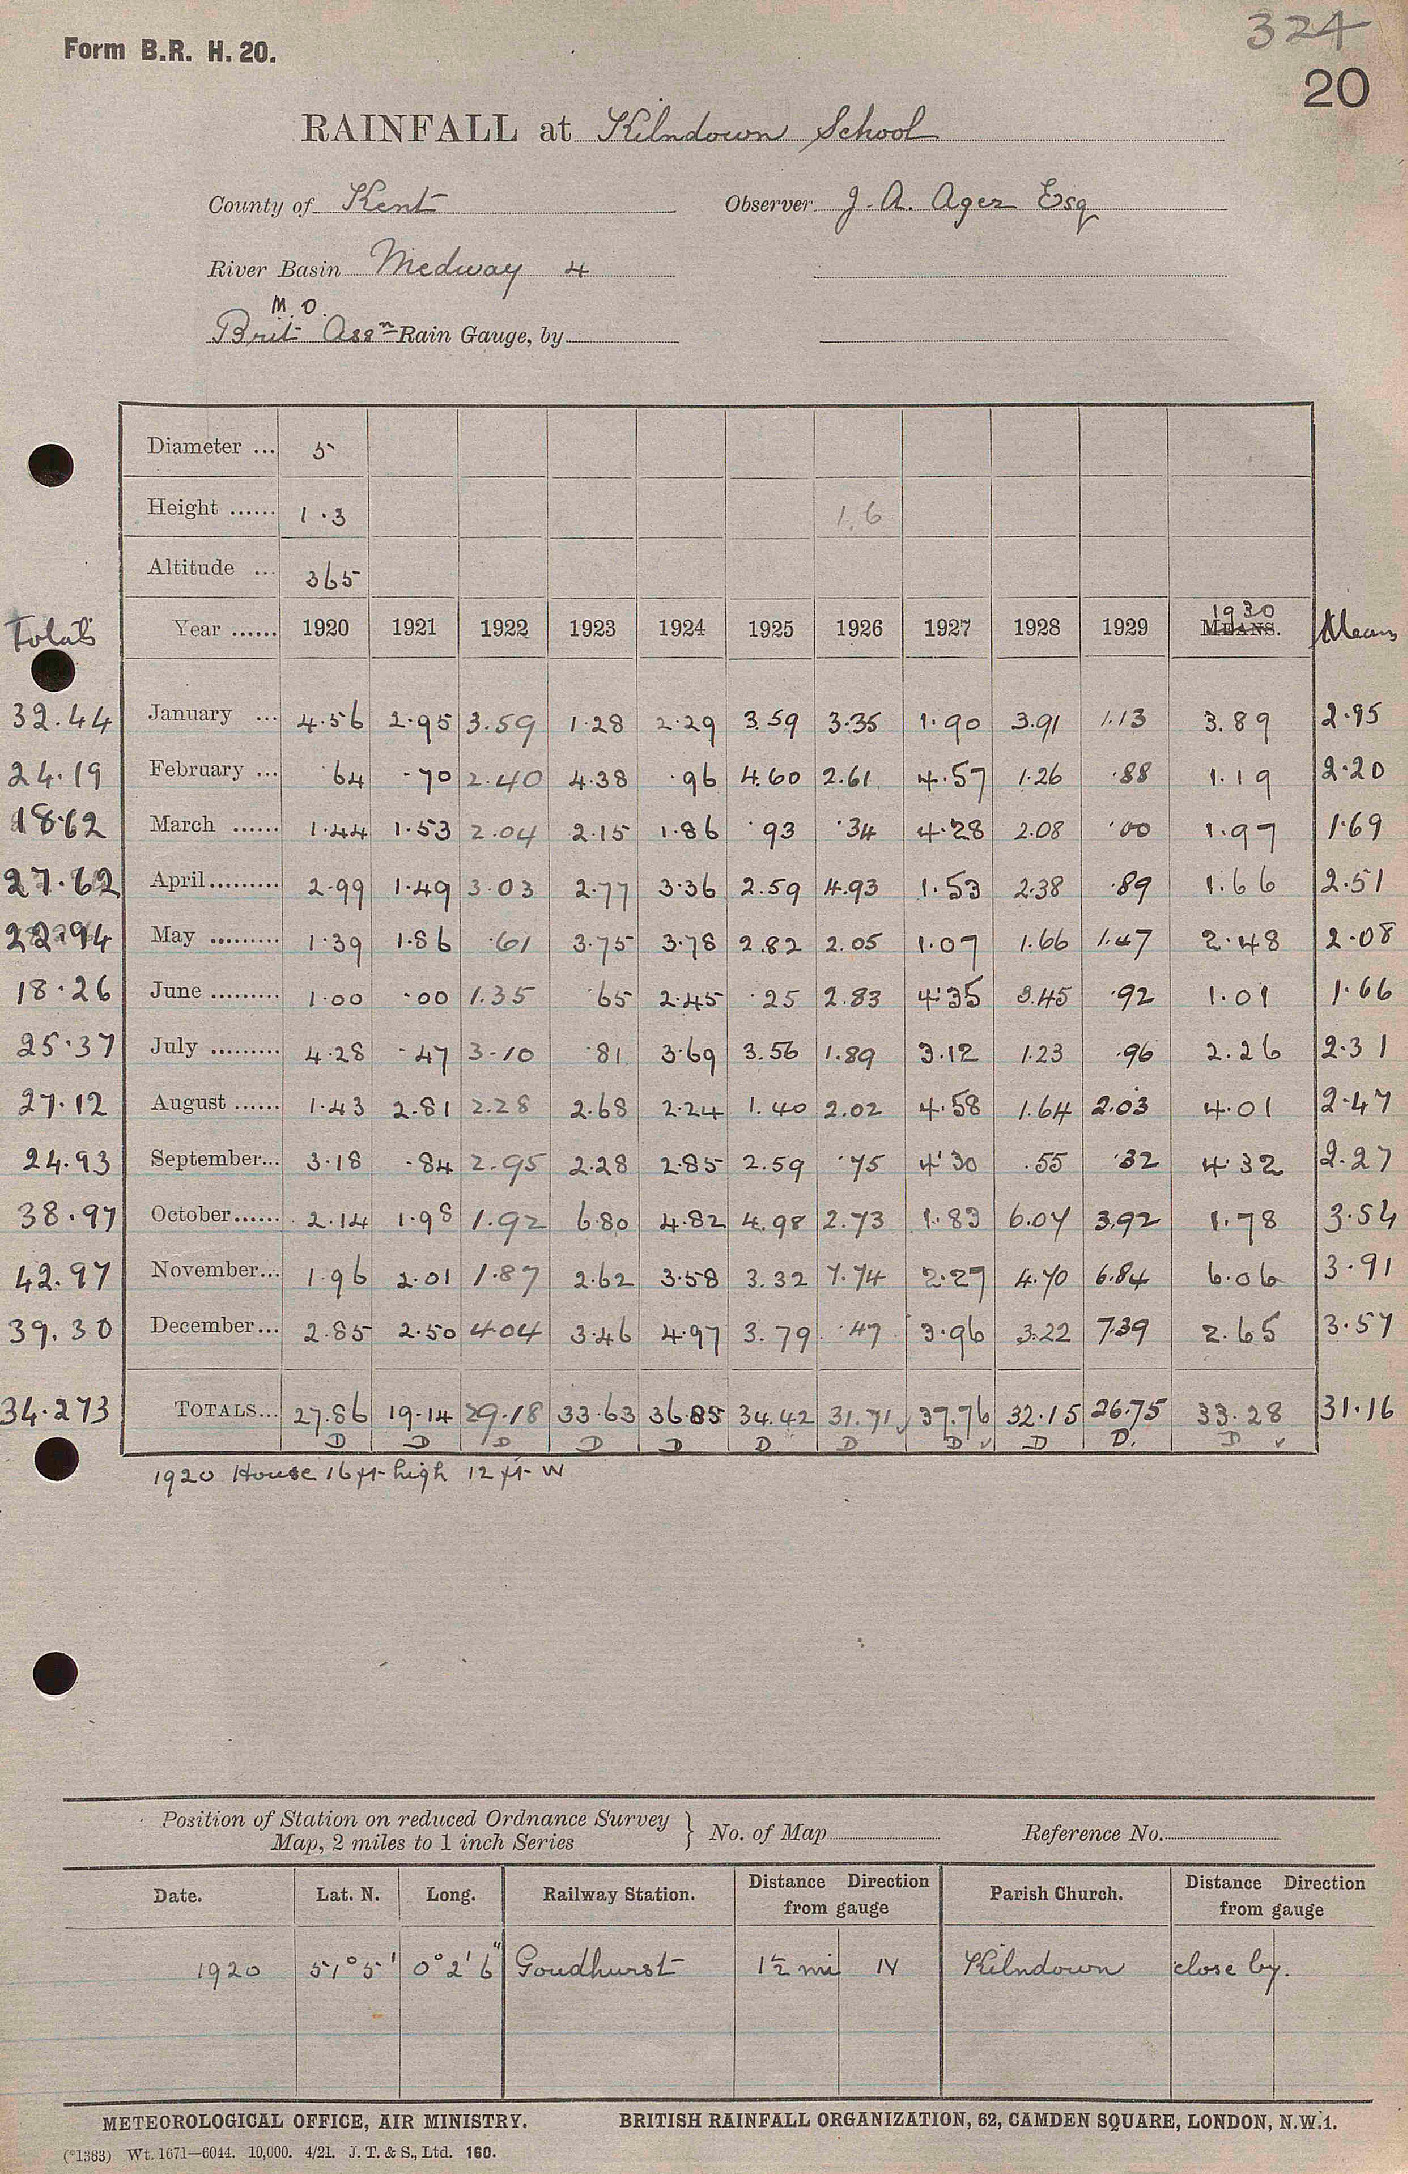 324
Form B.R. H. 20.
20
RAINFALL at Kilndown School
County of Kent Observer J. A. Ager Esq
River Basin Medway 4
M.O.
Brit Assn Rain Gauge, by
Diameter ... 5
Height ...... 1.3 1.6
Altitude ... 365
Totals Year ...... 1920 1921 1922 1923 1924 1925 1926 1927 1928 1929 1930 MEANS. Means
32.44 January ... 4.56 2.95 3.59 1.28 2.29 3.59 3.35 1.90 3.91 1.13 3.89 2.95
24.19 February ... .64 .70 2.40 4.38 .96 4.60 2.61 4.57 1.26 .88 1.19 2.20
18.62 March ...... 1.44 1.53 2.04 2.15 1.86 .93 .34 4.28 2.08 .00 1.97 1.69
27.62 April......... 2.99 1.49 3.03 2.77 3.36 2.59 4.93 1.53 2.38 .89 1.66 2.51
22.94 May ......... 1.39 1.86 .61 3.75 3.78 2.82 2.05 1.07 1.66 1.47 2.48 2.08
18.26 June ......... 1.00 .00 1.35 .65 2.45 .25 2.83 4.35 3.45 .92 1.01 1.66
25.37 July ......... 4.28 .47 3.10 .81 3.69 3.56 1.89 3.12 1.23 .96 2.26 2.31
27.12 August ...... 1.43 2.81 2.28 2.68 2.24 1.40 2.02 4.58 1.64 2.03 4.01 2.47
24.93 September... 3.18 .84 2.95 2.28 2.85 2.59 .75 4.30 .55 .32 4.32 2.27
38.97 October...... 2.14 1.98 1.92 6.80 4.82 4.98 2.73 1.83 6.07 3.92 1.78 3.54
42.97 November... 1.96 2.01 1.87 2.62 3.58 3.32 7.74 2.27 4.70 6.84 6.06 3.91
39.30 December... 2.85 2.50 4.04 3.46 4.97 3.79 .47 3.96 3.22 7.39 2.65 3.57
34.273 TOTALS... 27.86 19.14 29.18 33.63 36.85 34.42 31.71 37.76 32.15 26.75 33.28 31.16
D D D D D D D D ✓ D D. D ✓
1920 House 16 ft. high 12 ft. W
Position of Station on reduced Ordnance Survey
Map, 2 miles to 1 inch Series } No. of Map Reference No.
Date. Lat. N. Long. Railway Station. Distance Direction from gauge Parish Church. Distance Direction from gauge
1920 51°5' 0°2'6" Goudhurst 1½ mi N Kilndown close by.
METEOROLOGICAL OFFICE, AIR MINISTRY. BRITISH RAINFALL ORGANIZATION, 62, CAMDEN SQUARE, LONDON, N.W.1.
(*1383) Wt. 1671—6044. 10,000. 4/21. J. T. & S., Ltd. 160.